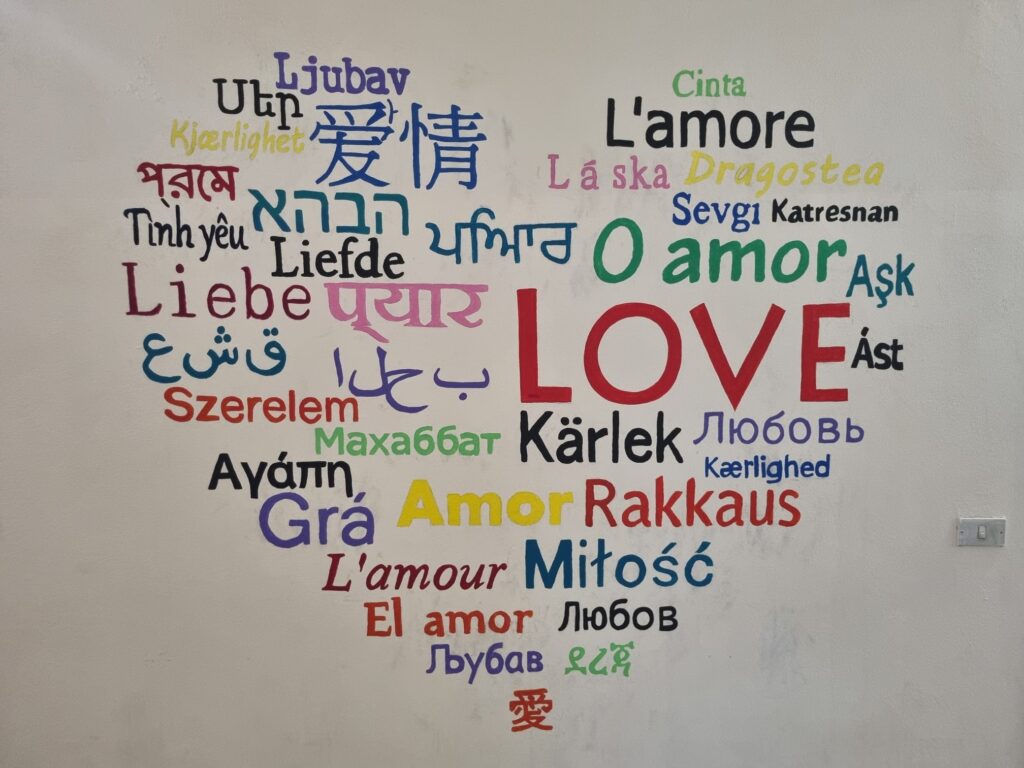 Ljubav
Սեր
Cinta
爱情
L'amore
Kjærlighet
Láska
Dragostea
প্‌রমে
הבהא
Sevgi
Katresnan
Tình yêu
ਪਿਆਰ
O amor
Liefde
Aşk
Liebe
प्‌यार
LOVE
ق ش ع
Ást
ب حلا
Szerelem
Kärlek
Любовь
Махаббат
Kærlighed
Αγάπη
Grá
Amor
Rakkaus
L'amour
Miłość
El amor
Любов
Љубав
ደረጃ
愛